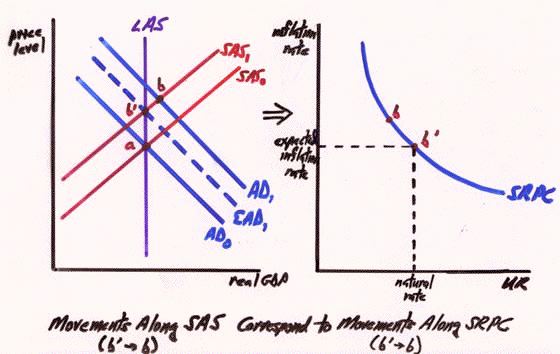 price
level
LAS
SAS₁
SAS₀
b
b'
a
AD₁
EAD₁
AD₀
real GDP
⇒
inflation
rate
b
b'
expected
inflation
rate
SRPC
natural
rate
UR
Movements Along SAS Correspond to Movements Along SRPC
(b'→b) (b'→b)